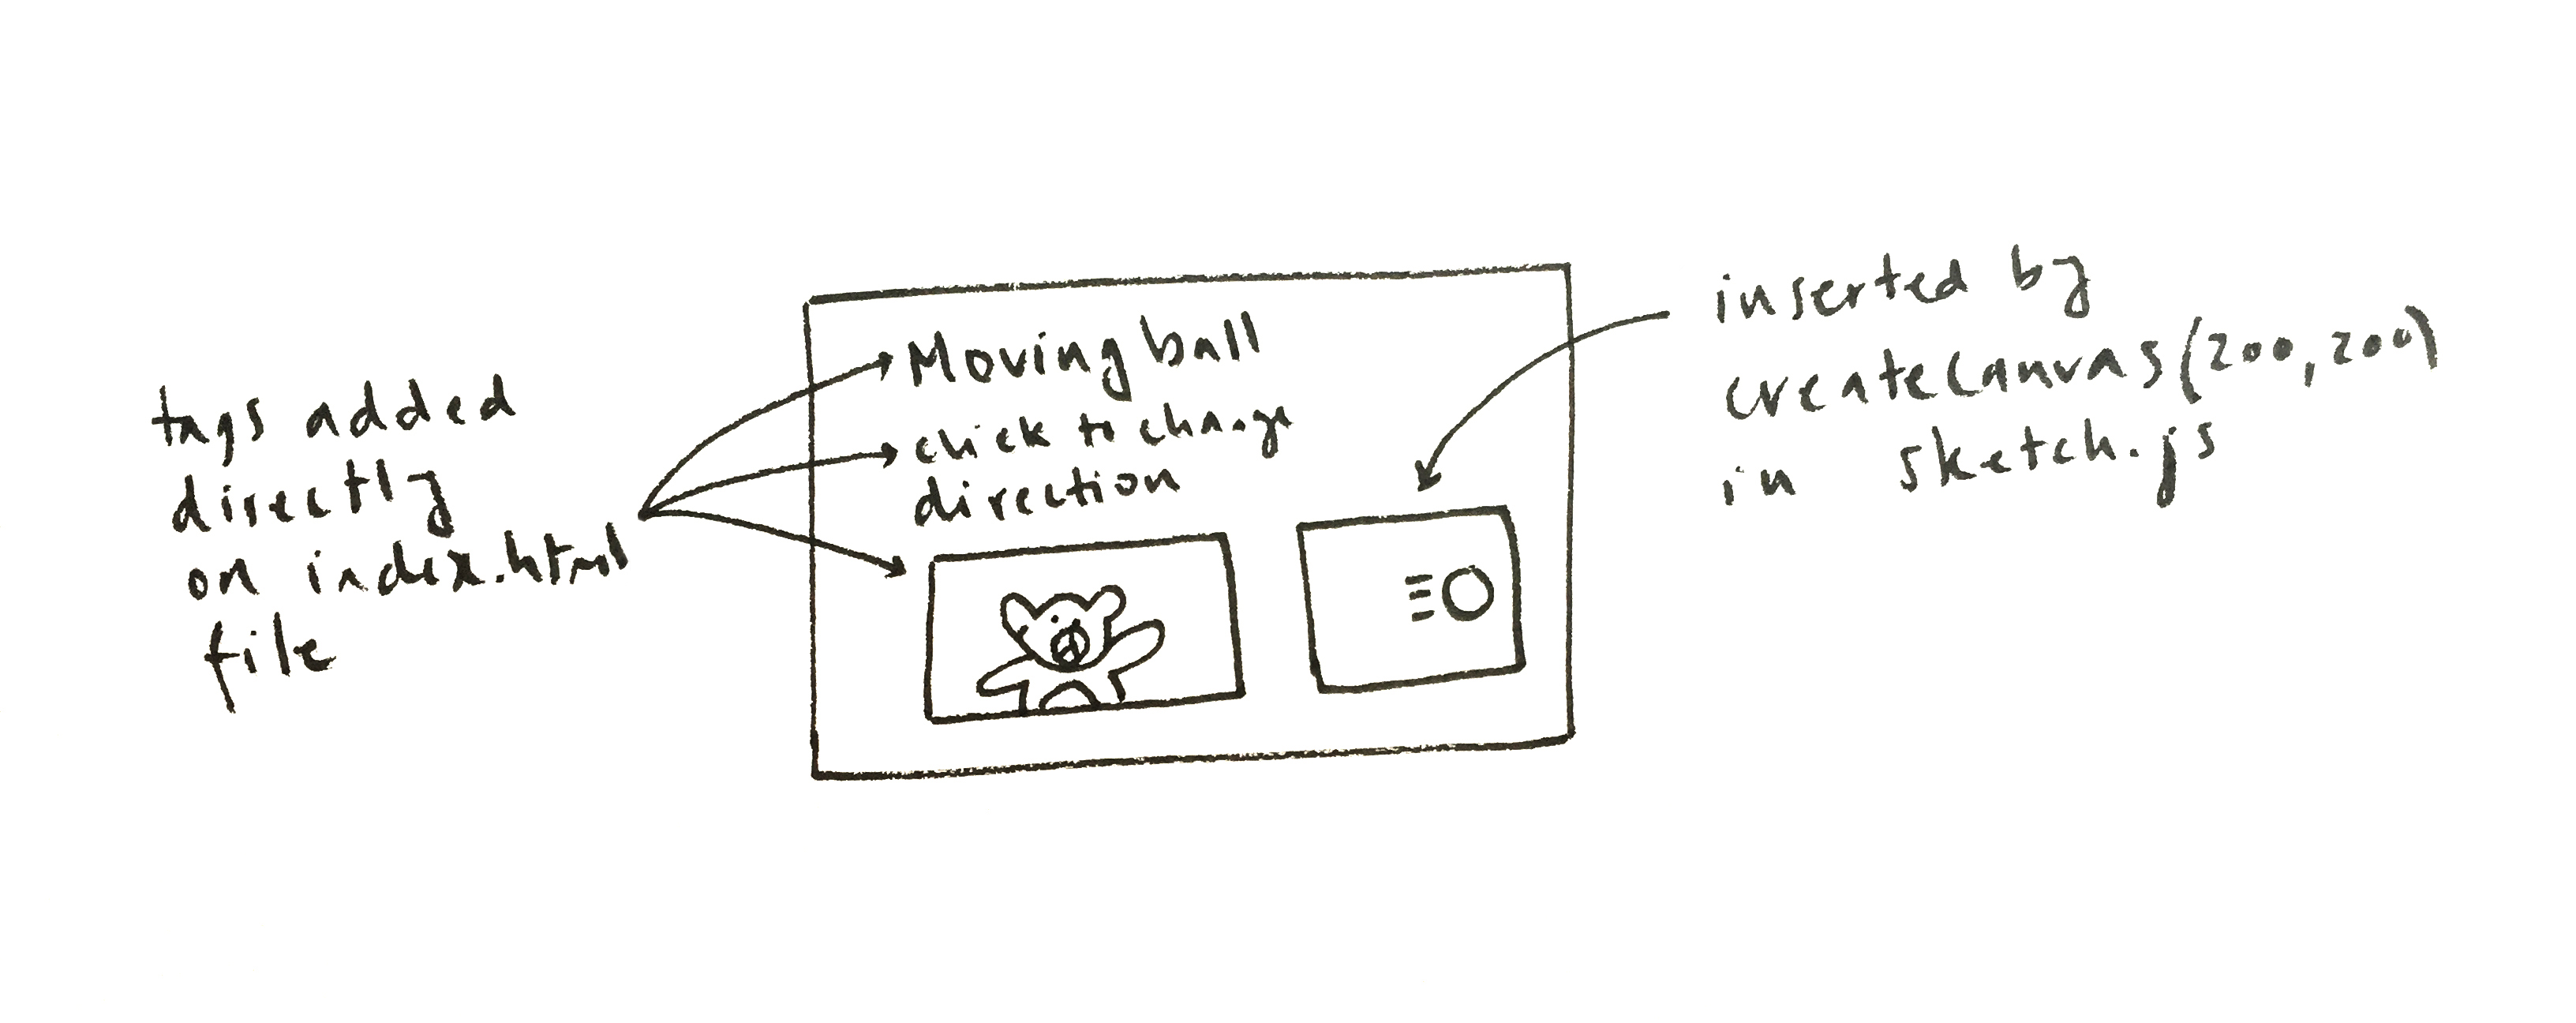 tags added
directly
on index.html
file
Moving ball
click to change
direction
inserted by
createCanvas(200,200)
in sketch.js